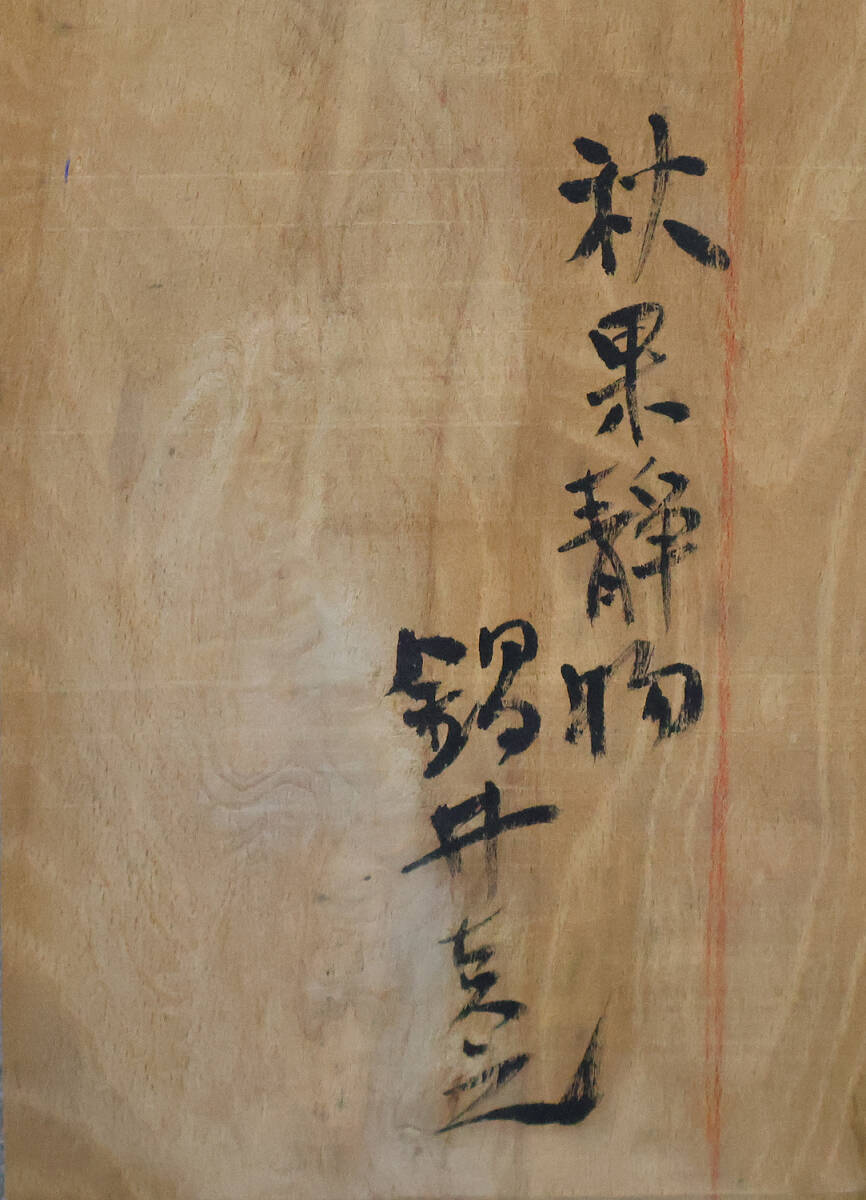 秋果静物
鍋井克之